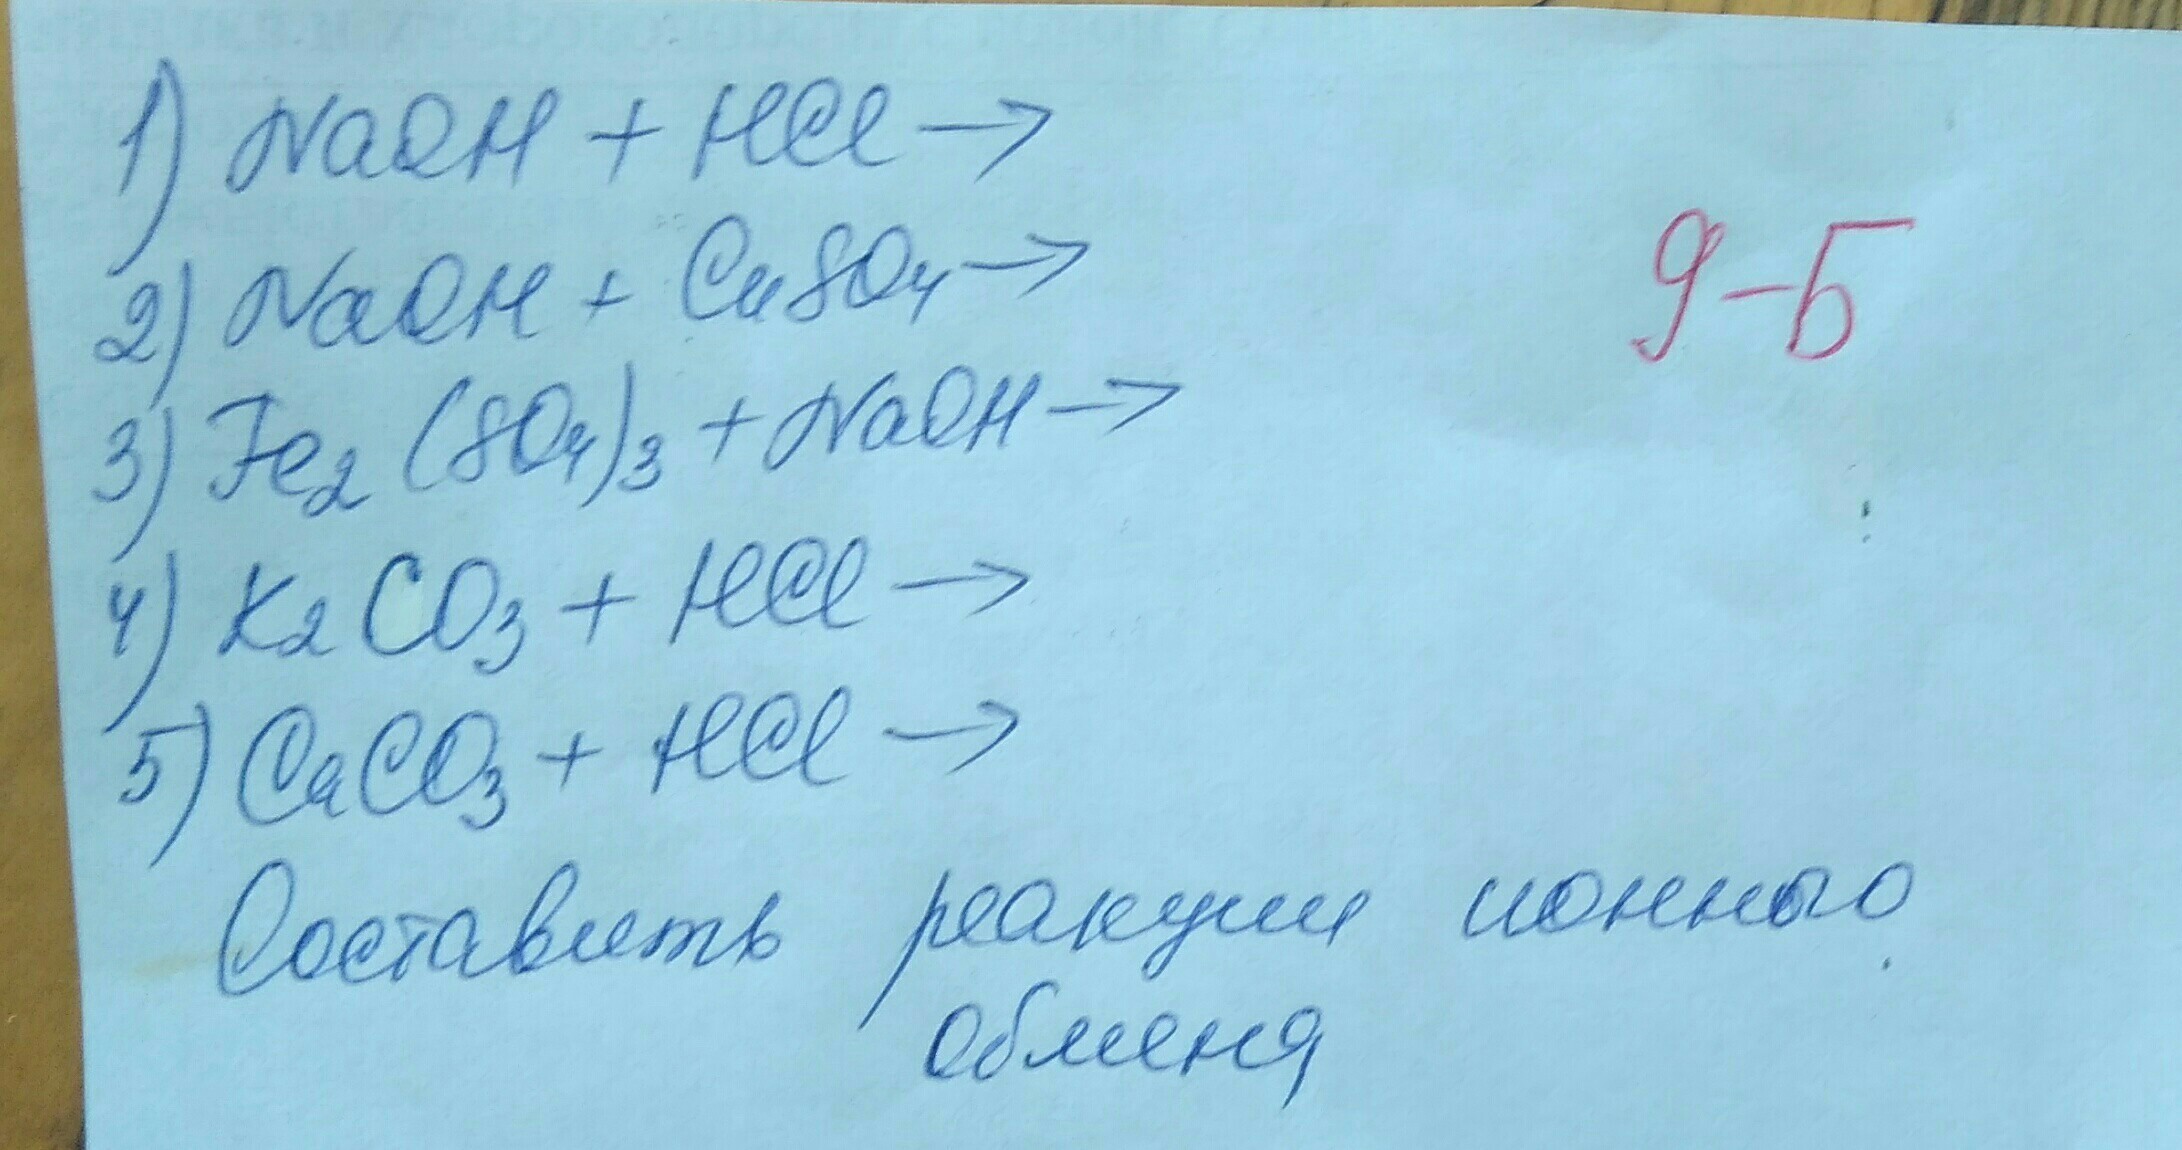 1) NaOH + HCl →
2) NaOH + CuSO₄ →
9-Б
3) Fe₂(SO₄)₃ + NaOH →
4) K₂CO₃ + HCl →
5) CaCO₃ + HCl →
Составить реакции ионного
обмена